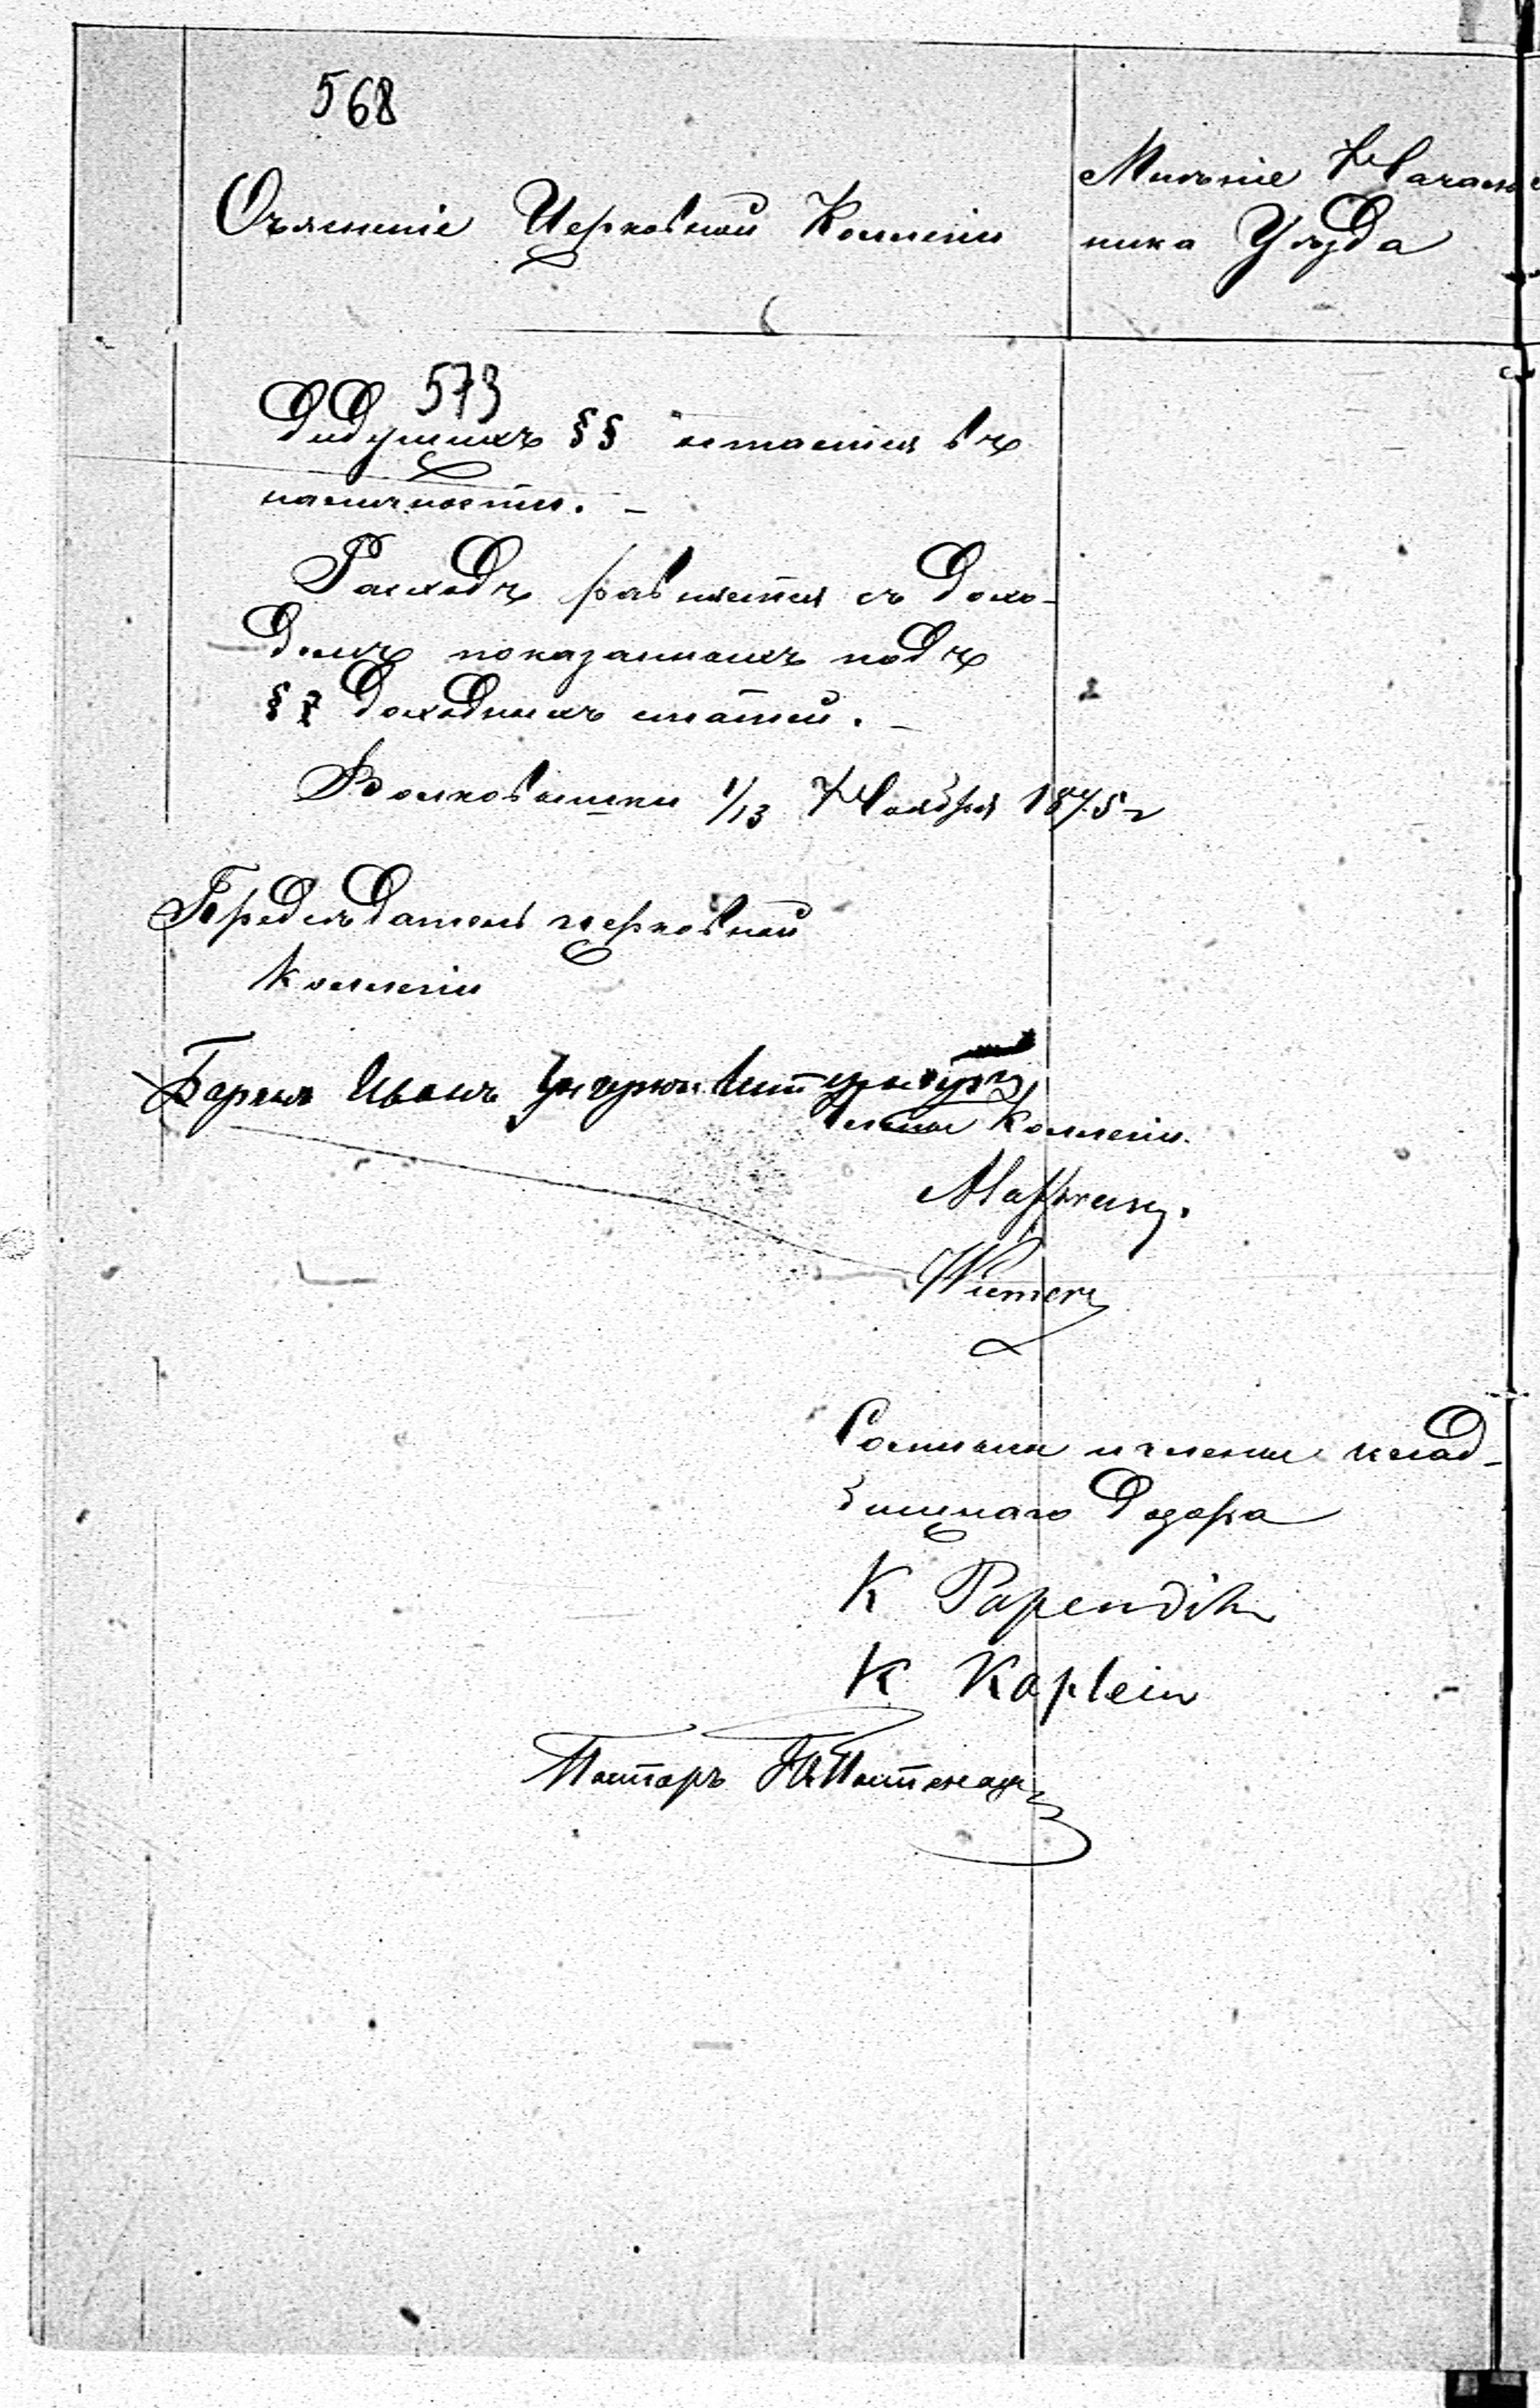 568
Оъясненіе Церковной Коллегіи
Мнѣніе Началь
ника Уѣзда
573
дидущихъ §§ остается въ
наличности. —
Расходъ равняется съ дохо-
домъ показаннымъ подъ
§ 7 доходныхъ статей. —
Волковышки 1/13 Ноября 1875 г
Предсѣдатель церковной
Коллегіи
Баронъ Иванъ
Члены Коллегіи.
Wiemer
и члены клад-
бищнаго дозора
K Papendik
K Kaplein
Пасторъ